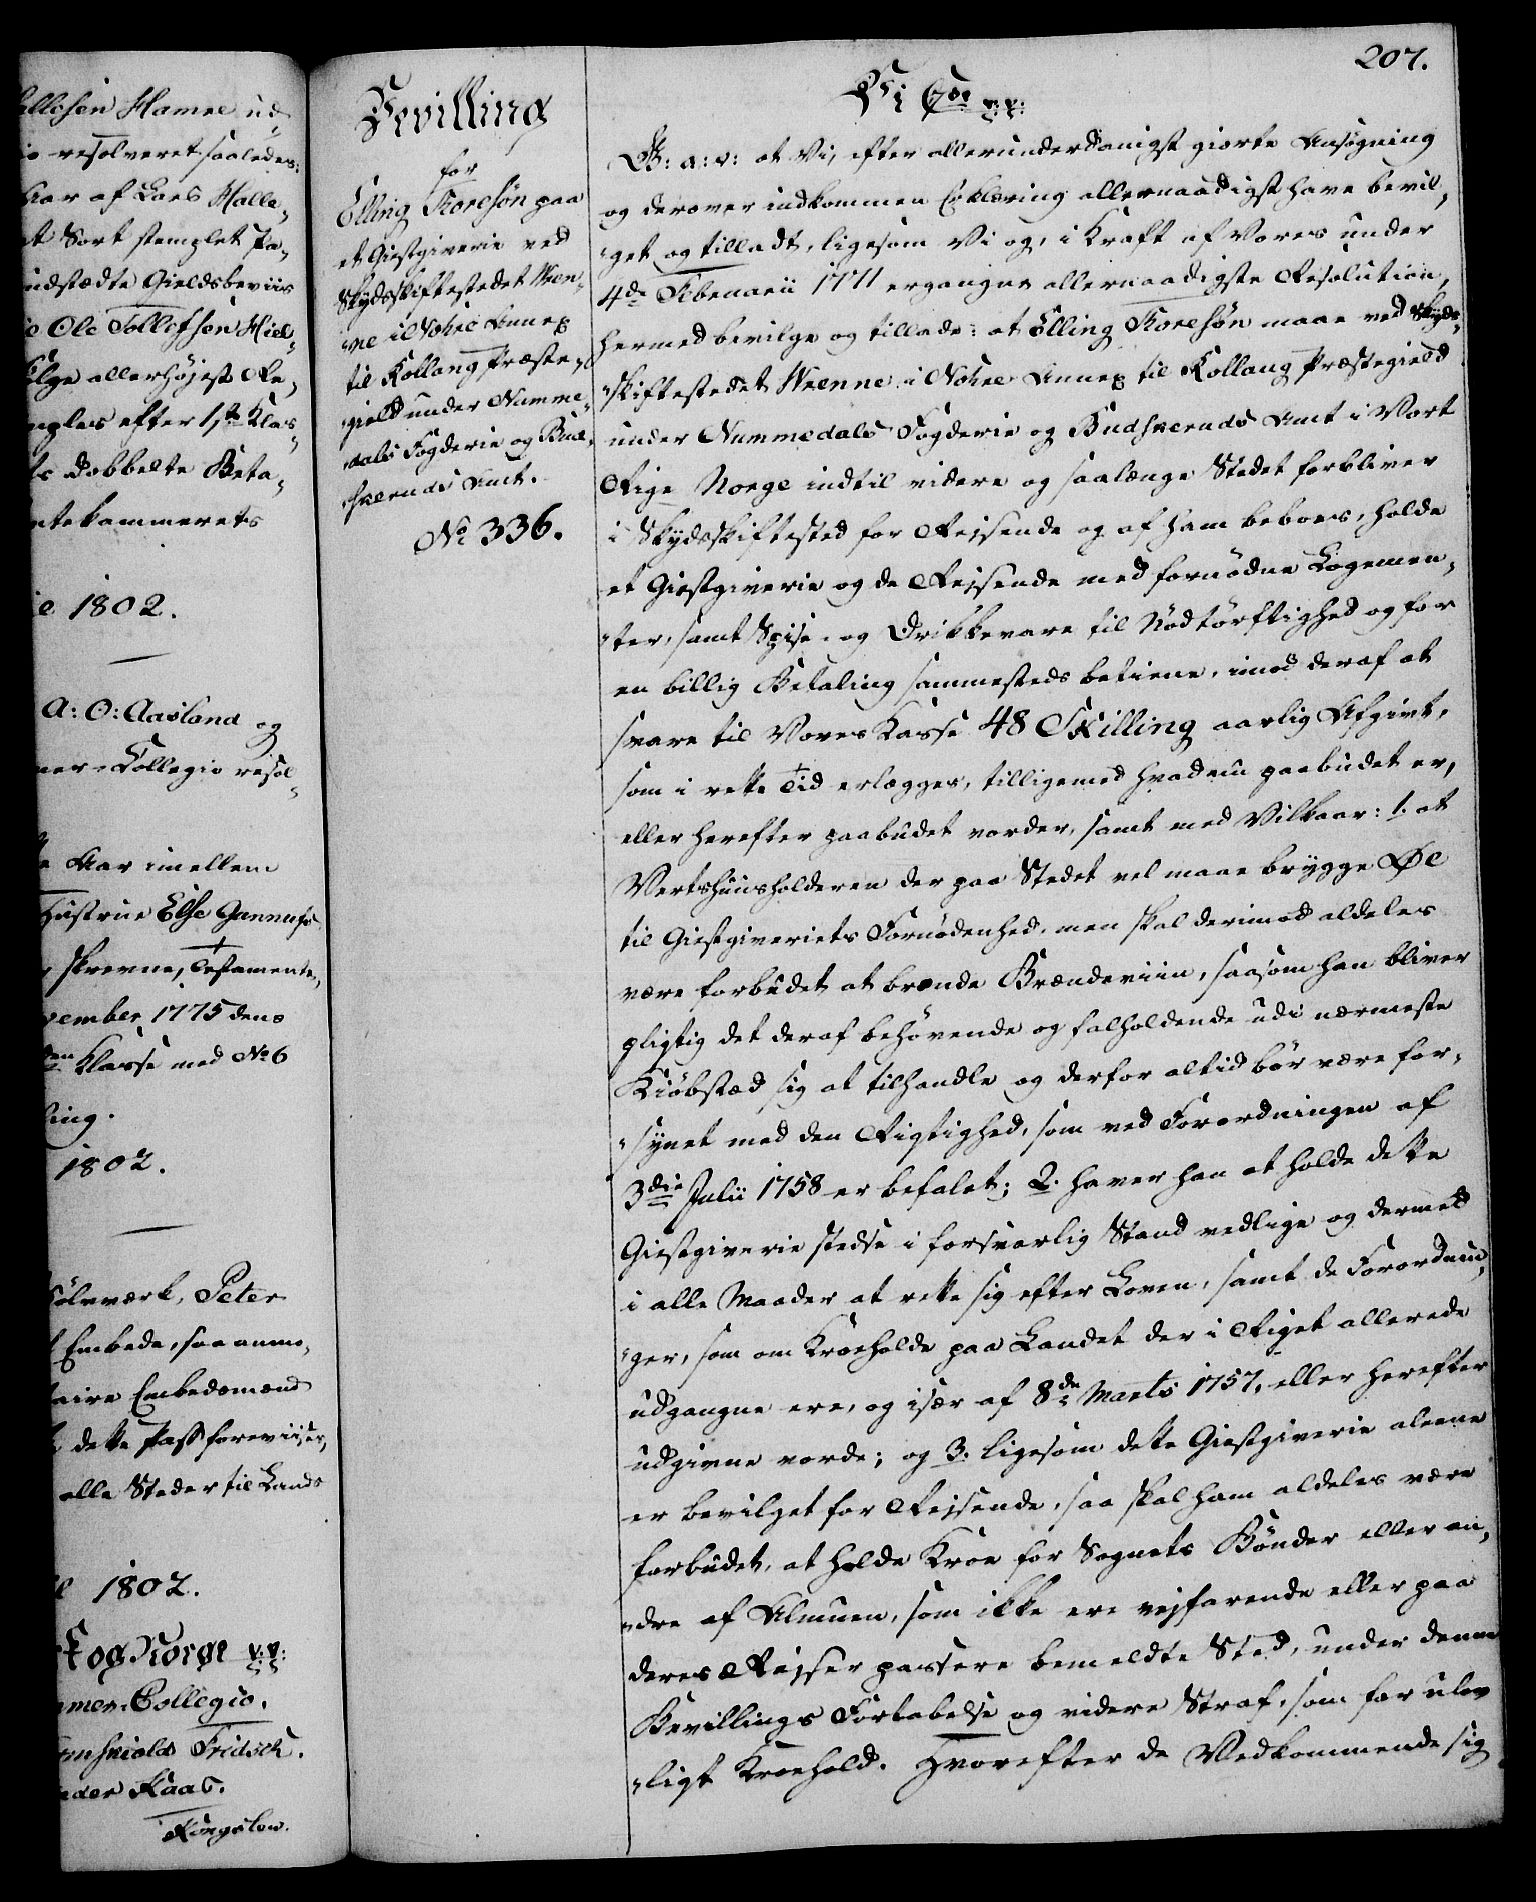 allesen Hamre ud-
resolveret saaledes:
har af Lars Halle-
et Sort stemplet Pa-
udstædte Gieldsbeviis
Ole Tollefsen Hiel-
følge allerhøjest Re-
efter 1ste Klas-
dobbelte Beta-
tekammerets
1802.
A: O: Aasland og
Kollegio resol-
Aar imellem
Hustrue Else Gunnufs
skrevne, Testamente,
vember 1775 dens
Klasse med No 6
ling.
1802.
Sölvværk, Peter
Embede, saa anmo-
taire Embedsmænd
dette Pass foreviises,
alle Steder til Lands
1802.
og Norge v: v:
mer-Collegio.
Fridsch.
Kaas.
Kongslew.
207.
Bevilling
for
Elling Toresøn paa
et Giestgiverie ved
Skydsskiftestedet Ween-
-ne i Nohre Annex
til Rollaug Præste-
-gield under Numme-
-dals Fogderie og Bud-
-skeruds Amt.
No 336.
Vi C 7de v: v:
G: a: v: at Vi, efter allerunderdanigst giorte Ansøgning
og derover indkommen Erklæring allernaadigst have bevil-
-get og tilladt, ligesom Vi og, i Kraft af Vores under
4de Februarii 1771 ergangne allernaadigste Resolution,
hermed bevilge og tillade: at Elling Toresøn maae ved Skyds-
-skiftestedet Weenne i Nohre Annex til Rollaug Præstegield
under Nummedals Fogderie og Budskeruds Amt i Vort
Rige Norge indtil videre og saalænge Stedet forbliver
i Skydsskiftested for Rejsende og af ham beboes, holde
et Giestgiverie og de Rejsende med fornødne Logemen-
-ter, samt Spise- og Drikkevare til Nødtørftighed og for
en billig Betaling sammesteds betiene, imod deraf at
svare til Vores Kasse 48 Skilling aarlig Afgivt,
som i rette Tid erlægges, tilligemed hvad nu paabudet er,
eller herefter paabudet vorder, samt med Vilkaar: 1. at
Vertshuusholderen der paa Stedet vel maae brygge Øl
til Giestgiveriets Fornødenhed, men skal derimod aldeles
være forbudet at brænde Brændeviin, saasom han bliver
pligtig det deraf behøvende og falholdende udi nærmeste
Kiøbstæd sig at tilhandle og derfor altid bør være for-
-synet med den Rigtighed, som ved Forordningen af
3die Julii 1758 er befalet; 2. haver han at holde dette
Giestgiverie stedse i forsvarlig Stand vedlige og dermed
i alle Maader at rette sig efter Loven, samt de Forordnin-
-ger, som om Kroehold paa Landet der i Riget allerede
udgangne ere, og især af 8de Marts 1757, eller herefter
udgivne vorde; og 3. ligesom dette Giestgiverie aleene
er bevilget for Rejsende, saa skal ham aldeles være
forbudet, at holde Kroe for Sognets Bønder eller an-
-dre af Almuen, som ikke ere vejfarende eller paa
deres Rejser passere bemeldte Sted, under denne
Bevillings Fortabelse og videre Straf, som for ulov
-ligt Kroehold. Hvorefter de Vedkommende sig